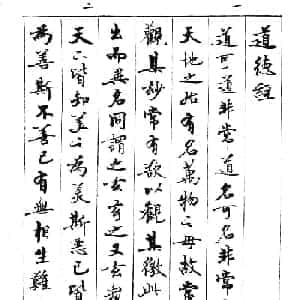 一
道德經
道可道非常道名可名非常
天地之始有名萬物之母故常
觀其妙常有欲以觀其徼此
二
出而異名同謂之玄玄之又玄衆
天下皆知美之為美斯惡已皆
為善斯不善已有無相生難